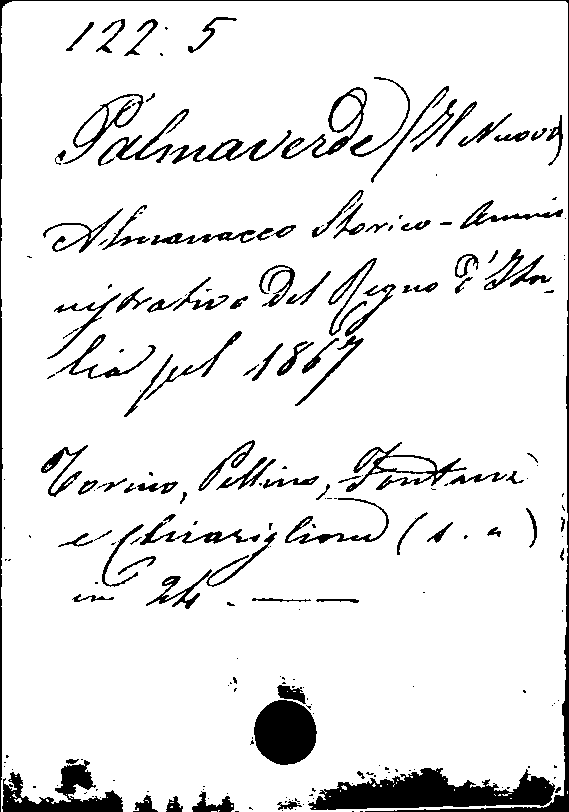 122. 5
Palmaverde (Il Nuovo)
Almanacco Storico-Ammi
nistrativo del Regno d'Ita-
lia pel 1867
Torino, Pellino, Fontana
e Chiariglione (s. a)
in 24. —